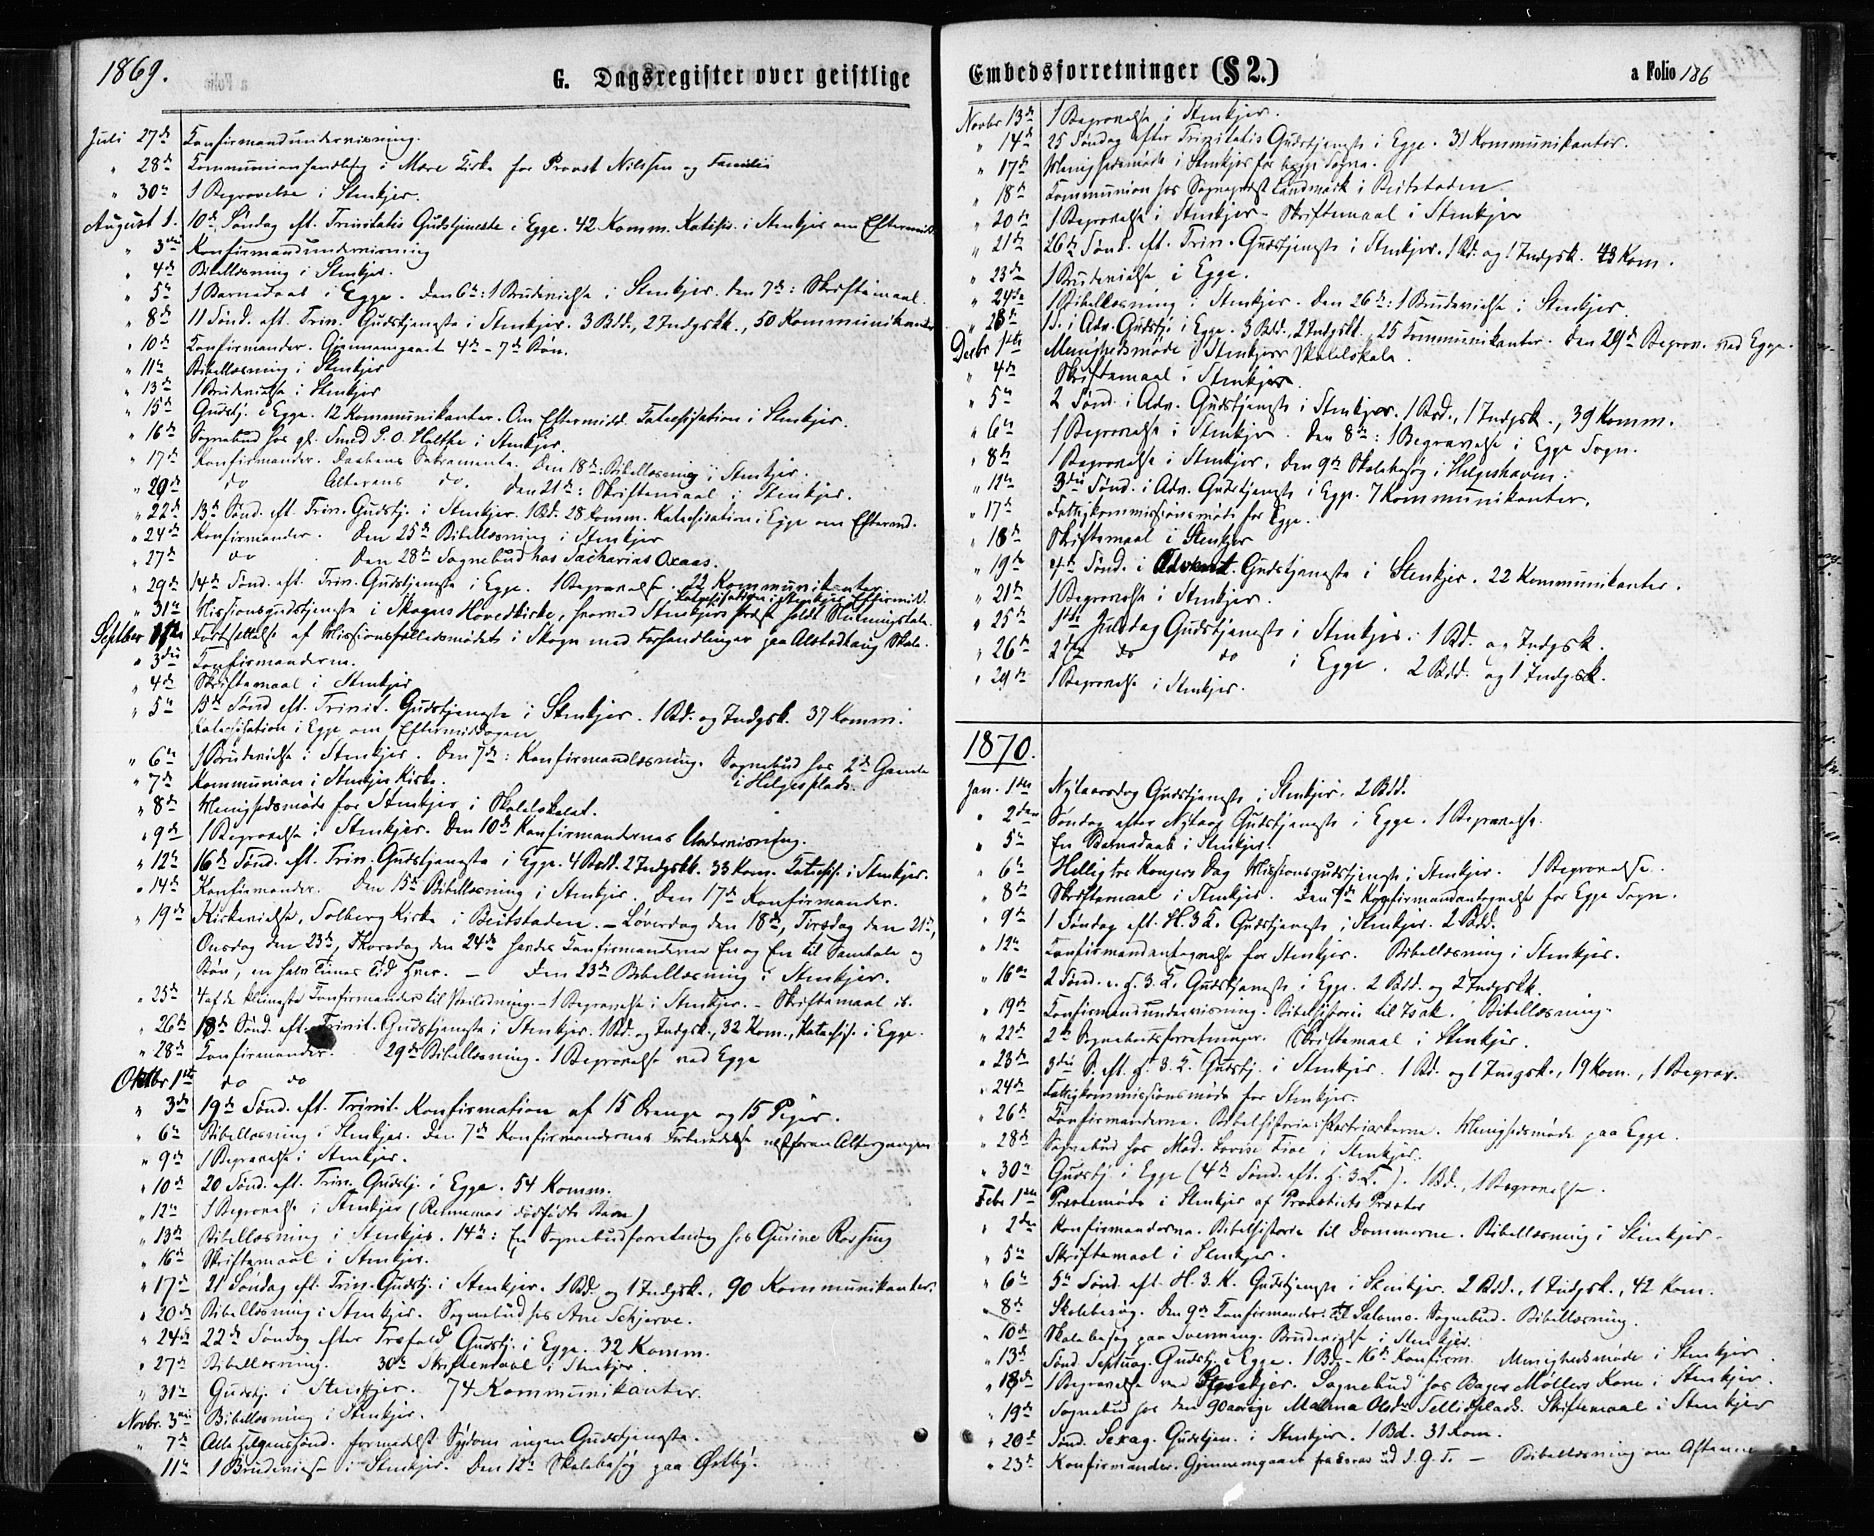 1869.
G. Dagsregister over geistlige
Juli 27de Konfirmandundervisning.
" 28de Kommunionshandling i Mære Kirke for Provst Nilssen og Familie
" 30te 1 Begravelse i Stenkjer.
August 1. 10de Søndag eft. Trinitatis Gudstjeneste i Egge. 42 Komm. Katekis. i Stenkjer om Eftermidd.
" 3die Konfirmandundervisning
" 4de Bibellæsning i Stenkjer.
" 5te 1 Barnedaab i Egge. Den 6te: 1 Brudevielse i Stenkjer. Den 7de: Skriftemaal.
" 8de 11 Sønd. eft. Trin. Gudstjeneste i Stenkjer. 3 Bdd., 2 Indgsk., 50 Kommunikanter
" 10de Konfirmander. Gjennemgaaet 4de - 7de Bøn.
" 11te Bibellæsning i Stenkjer
" 13de 1 Brudevielse i Stenkjer
" 15de Gudstj. i Egge. 12 Kommunikanter. Om Eftermidd. Katechisation i Stenkjer.
" 16de Sognebud hos gl. Smed P. O. Holthe i Stenkjer.
" 17de Konfirmander. Daabens Sakramente. Den 18de: Bibellæsning i Stenkjer.
" 20de do Alterens do. Den 21de: Skriftemaal i Stenkjer.
" 22de 13de Sønd. eft. Trin. Gudstj. i Stenkjer. 1 Bd. 28 Komm. Katechisation i Egge om Efterm.
" 24de Konfirmander. Den 25de Bibellæsning i Stenkjer
" 27de do Den 28de Sognebud hos Zacharias Oxaas.
" 29de 14de Sønd. eft. Trin. Gudstjeneste i Egge. 1 Begravelse. 22 Kommunikanter
Katechisation i Stenkjer Eftermidd.
" 31te Missionsgudstjeneste i Skogns Hovedkirke, hvorved Stenkjers Præst holdt Slutningstale.
September 1ste Fortsættelse af Missionsfællesmødet i Skogn med Forhandlinger paa Alstadhaug Skole.
" 3die Konfirmanderne.
" 4de Skriftemaal i Stenkjer
" 5te 15de Sønd eft. Trinit. Gudstjeneste i Stenkjer. 1 Bd. og Indgsk. 37 Komm.
Katechisation i Egge om Eftermiddagen
" 6te 1 Brudevielse i Stenkjer. Den 7de: Konfirmandlæsning. Sognebud hos 2de Gamle
i Helgesplads.
" 7de Kommunion i Stenkjer Kirke.
" 8de Menighedsmøde for Stenkjer i Skolelokalet.
" 9de 1 Begravelse i Stenkjer. Den 10de Konfirmandernes Undervisning.
" 12te 16de Sønd. eft. Trin. Gudstjeneste i Egge. 4 Bdd. 2 Indgskk. 33 Kom. Katechis. i Stenkjer.
" 14de Konfirmander. Den 15de Bibellæsning i Stenkjer. Den 17de Konfirmander.
" 19de Kirkevielse, Solberg Kirke i Beitstaden. - Løverdag den 18de, Tirsdag den 21de,
Onsdag den 23de, Thorsdag den 24de havdes Konfirmanderne En og En til Samtale og
Bøn, en halv Times Tid hver. — Den 23de Bibellæsning i Stenkjer.
" 25de 4 af de svageste Konfirmander til Veiledning. - 1 Begravelse i Stenkjer. - Skriftemaal ib.
" 26de 18de Sønd. eft. Trinit. Gudstjeneste i Stenkjer. 1 Bd. og Indgsk., 32 Kom., Katechis. i Egge.
" 28de Konfirmander. 29de Bibellæsning. 1 Begravelse ved Egge
Oktbr 1ste do do
" 3de 19de Sønd. eft. Trinit. Konfirmation af 15 Drenge og 15 Piger.
" 6te Bibellæsning i Stenkjer. Den 7de Konfirmandernes Forberedelse udforan Altergangen
" 9de 1 Begravelse i Stenkjer.
" 10de 20 Sønd. eft. Trin. Gudstj. i Egge. 54 Komm.
" 12te 1 Begravelse i Stenkjer (Rennemos dødfødte Barn)
" 13de Bibellæsning i Stenkjer. 14de: En Sognebudforretning hos Gurine Rørsing
" 16de Skriftemaal i Stenkjer.
" 17de 21 Søndag eft. Trin. Gudstj. i Stenkjer. 1 Bd. og 1 Indgsk., 90 Kommunikanter.
" 20de Bibellæsning i Stenkjer. Sognebud hos Ane Schjerve.
" 24de 22de Søndag efter Trefold. Gudstj. i Egge. 32 Komm.
" 27de Bibellæsning. 30te Skriftemaal i Stenkjer.
" 31te Gudstj. i Stenkjer. 74 Kommunikanter.
Novbr. 3die Bibellæsning i Stenkjer.
" 7de Alle Helgens Sønd. formedelst Sygdom ingen Gudstjeneste.
" 11te 1 Brudevielse i Stenkjer. Den 12te Skolebesøg paa Østby.
Embedsforretninger (§ 2.)
a Folio 186
Novbr 13de 1 Begravelse i Stenkjer.
" 14de 25 Søndag efter Trinitatis Gudstjeneste i Egge. 31 Kommunikanter.
" 17de Menighedsmøde i Stenkjer for begge Sogne.
" 18de Kommunion hos Sognepræst Landmark i Beitstaden
" 20de 1 Begravelse i Stenkjer - Skriftemaal i Stenkjer
" 21de 26de Sønd. eft. Trin. Gudstjeneste i Stenkjer. 1 Bd. og 1 Indgsk. 43 Kom.
" 23de 1 Brudevielse i Egge.
" 24de 1 Bibellæsning i Stenkjer. Den 26de: 1 Brudevielse i Stenkjer.
" 28de 1 S. i Adv. Gudstj. i Egge. 3 Bdd., 2 Indgskk. 25 Kommunikanter. Den 29de Begrav. ved Egge.
Decbr 1ste Menighedsmøde i Stenkjers Skolelokale.
" 4de Skriftemaal i Stenkjer.
" 5te 2 Sønd. i Adv. Gudstjeneste i Stenkjer. 1 Bd., 1 Indgsk., 39 Komm.
" 6te 1 Begravelse i Stenkjer. Den 8de: 1 Begravelse i Egge Sogn.
" 8de 1 Begravelse i Stenkjer. Den 9de Skolebesøg i Helgeshaven.
" 12te 3die Sønd. i Adv. Gudstjeneste i Egge. 7 Kommunikanter.
" 17de Fattigkommissionsmøde for Egge.
" 18de Skriftemaal i Stenkjer
" 19de 4de Sønd. i Advent. Gudstjeneste i Stenkjer. 22 Kommunikanter.
" 21de 1 Begravelse i Stenkjer.
" 25de 1ste Juledag Gudstjeneste i Stenkjer. 1 Bd. og Indgsk.
" 26de 2den do do i Egge. 2 Bdd. og 1 Indgsk.
" 29de 1 Begravelse i Stenkjer.
1870.
Jan. 1ste Nytaarsdag Gudstjeneste i Stenkjer. 2 Bdd.
" 2den Søndag efter Nytaar Gudstjeneste i Egge. 1 Begravelse.
" 5te En Barnedaab i Stenkjer.
" 6te Hellig tre Kongers Dag Missionsgudstjeneste i Stenkjer. 1 Begravelse.
" 8de Skriftemaal i Stenkjer. Den 7de Konfirmandantagelse for Egge Sogn.
" 9de 1 Søndag eft. H. 3 K. Gudstjeneste i Stenkjer. 2 Bdd.
" 12te Konfirmandantagelse for Stenkjer. Bibellæsning i Stenkjer.
" 16de 2 Sønd. e. H. 3. K. Gudstjeneste i Egge. 2 Bdd. og 2 Indgskk.
" 19de Konfirmandundervisning. Bibelhistorie til Isak. Bibellæsning.
" 22de 2de Sognebudsforretninger. Skriftemaal i Stenkjer.
" 23de 3die S. eft. H. 3. K. Gudstj. i Stenkjer. 1 Bd. og 1 Indgsk., 19 Kom., 1 Begrav.
" 24de Fattigkommissionsmøde for Stenkjer.
" 26de Konfirmanderne. Bibelhistorie: Patriarkerne. Menighedsmøde paa Egge.
" 28de Sognebud hos Mad. Lovise Five i Stenkjer.
" 30te Gudstj. i Egge (4de Sønd. eft. H. 3. K.). 1 Bd., 1 Begravelse.
Febr 1ste Præstemøde i Stenkjer af Provstiets Præster
" 2den Konfirmanderne. Bibelhistorie til Dommerne. Bibellæsning i Stenkjer.
" 5te Skriftemaal i Stenkjer.
" 6te 5te Sønd. eft. H. 3. K. Gudstjeneste i Stenkjer. 2 Bdd., 1 Indgsk., 42 Kom.
" 8de Skolebesøg. Den 9de Konfirmander til Salomo. Sognebud. Bibellæsning.
" 10de Skolebesøg paa Svenning. Brudevielse i Stenkjer.
" 13de Sønd Septuag. Gudstj. i Egge. 1 Bd. - 16de Konfirm. Menighedsmøde i Stenkjer.
" 18de 1 Begravelse ved Stenkjer. Sognebud hos Bager Møllers Kone i Stenkjer.
" 19de Sognebud hos den 90aarige Malena Olsdr Tellidsplads. Skriftemaal i Stenkjer
" 20de Sønd. Sexag. Gudstjen. i Stenkjer. 1 Bd. 31 Kom.
" 23de Konfirmander. Gjennemgaaet fra Esras ud d. G. T. — Bibellæsning om Aftenen